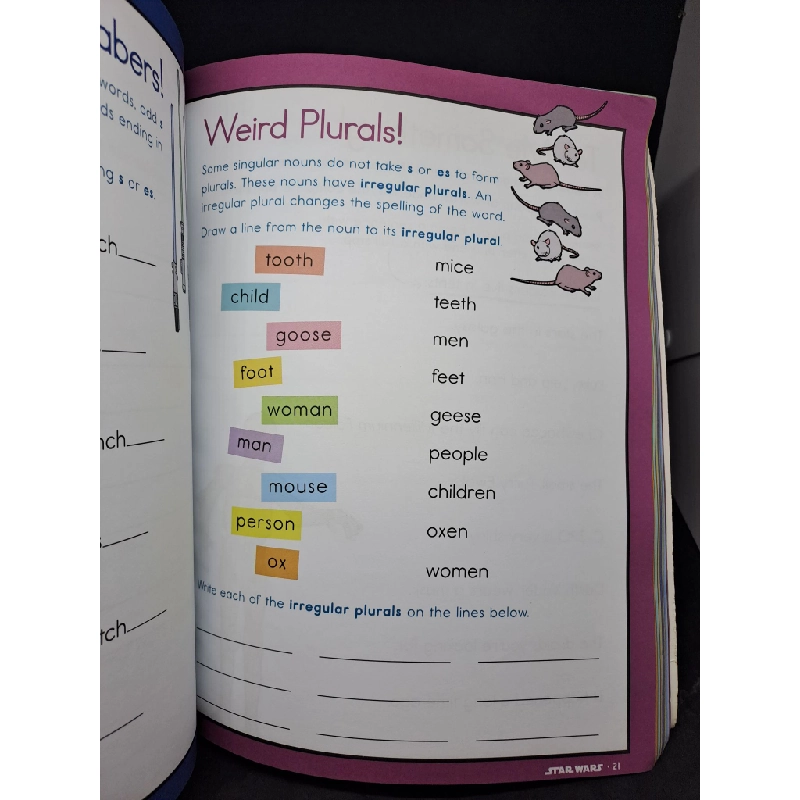 abers!
words, add s
ds ending in
ng s or es.
ch
nch
tch
Weird Plurals!
Some singular nouns do not take s or es to form
plurals. These nouns have irregular plurals. An
irregular plural changes the spelling of the word.
Draw a line from the noun to its irregular plural
tooth mice
child teeth
goose men
foot feet
woman geese
man people
mouse children
person oxen
ox women
Write each of the irregular plurals on the lines below.
STAR WARS · 21